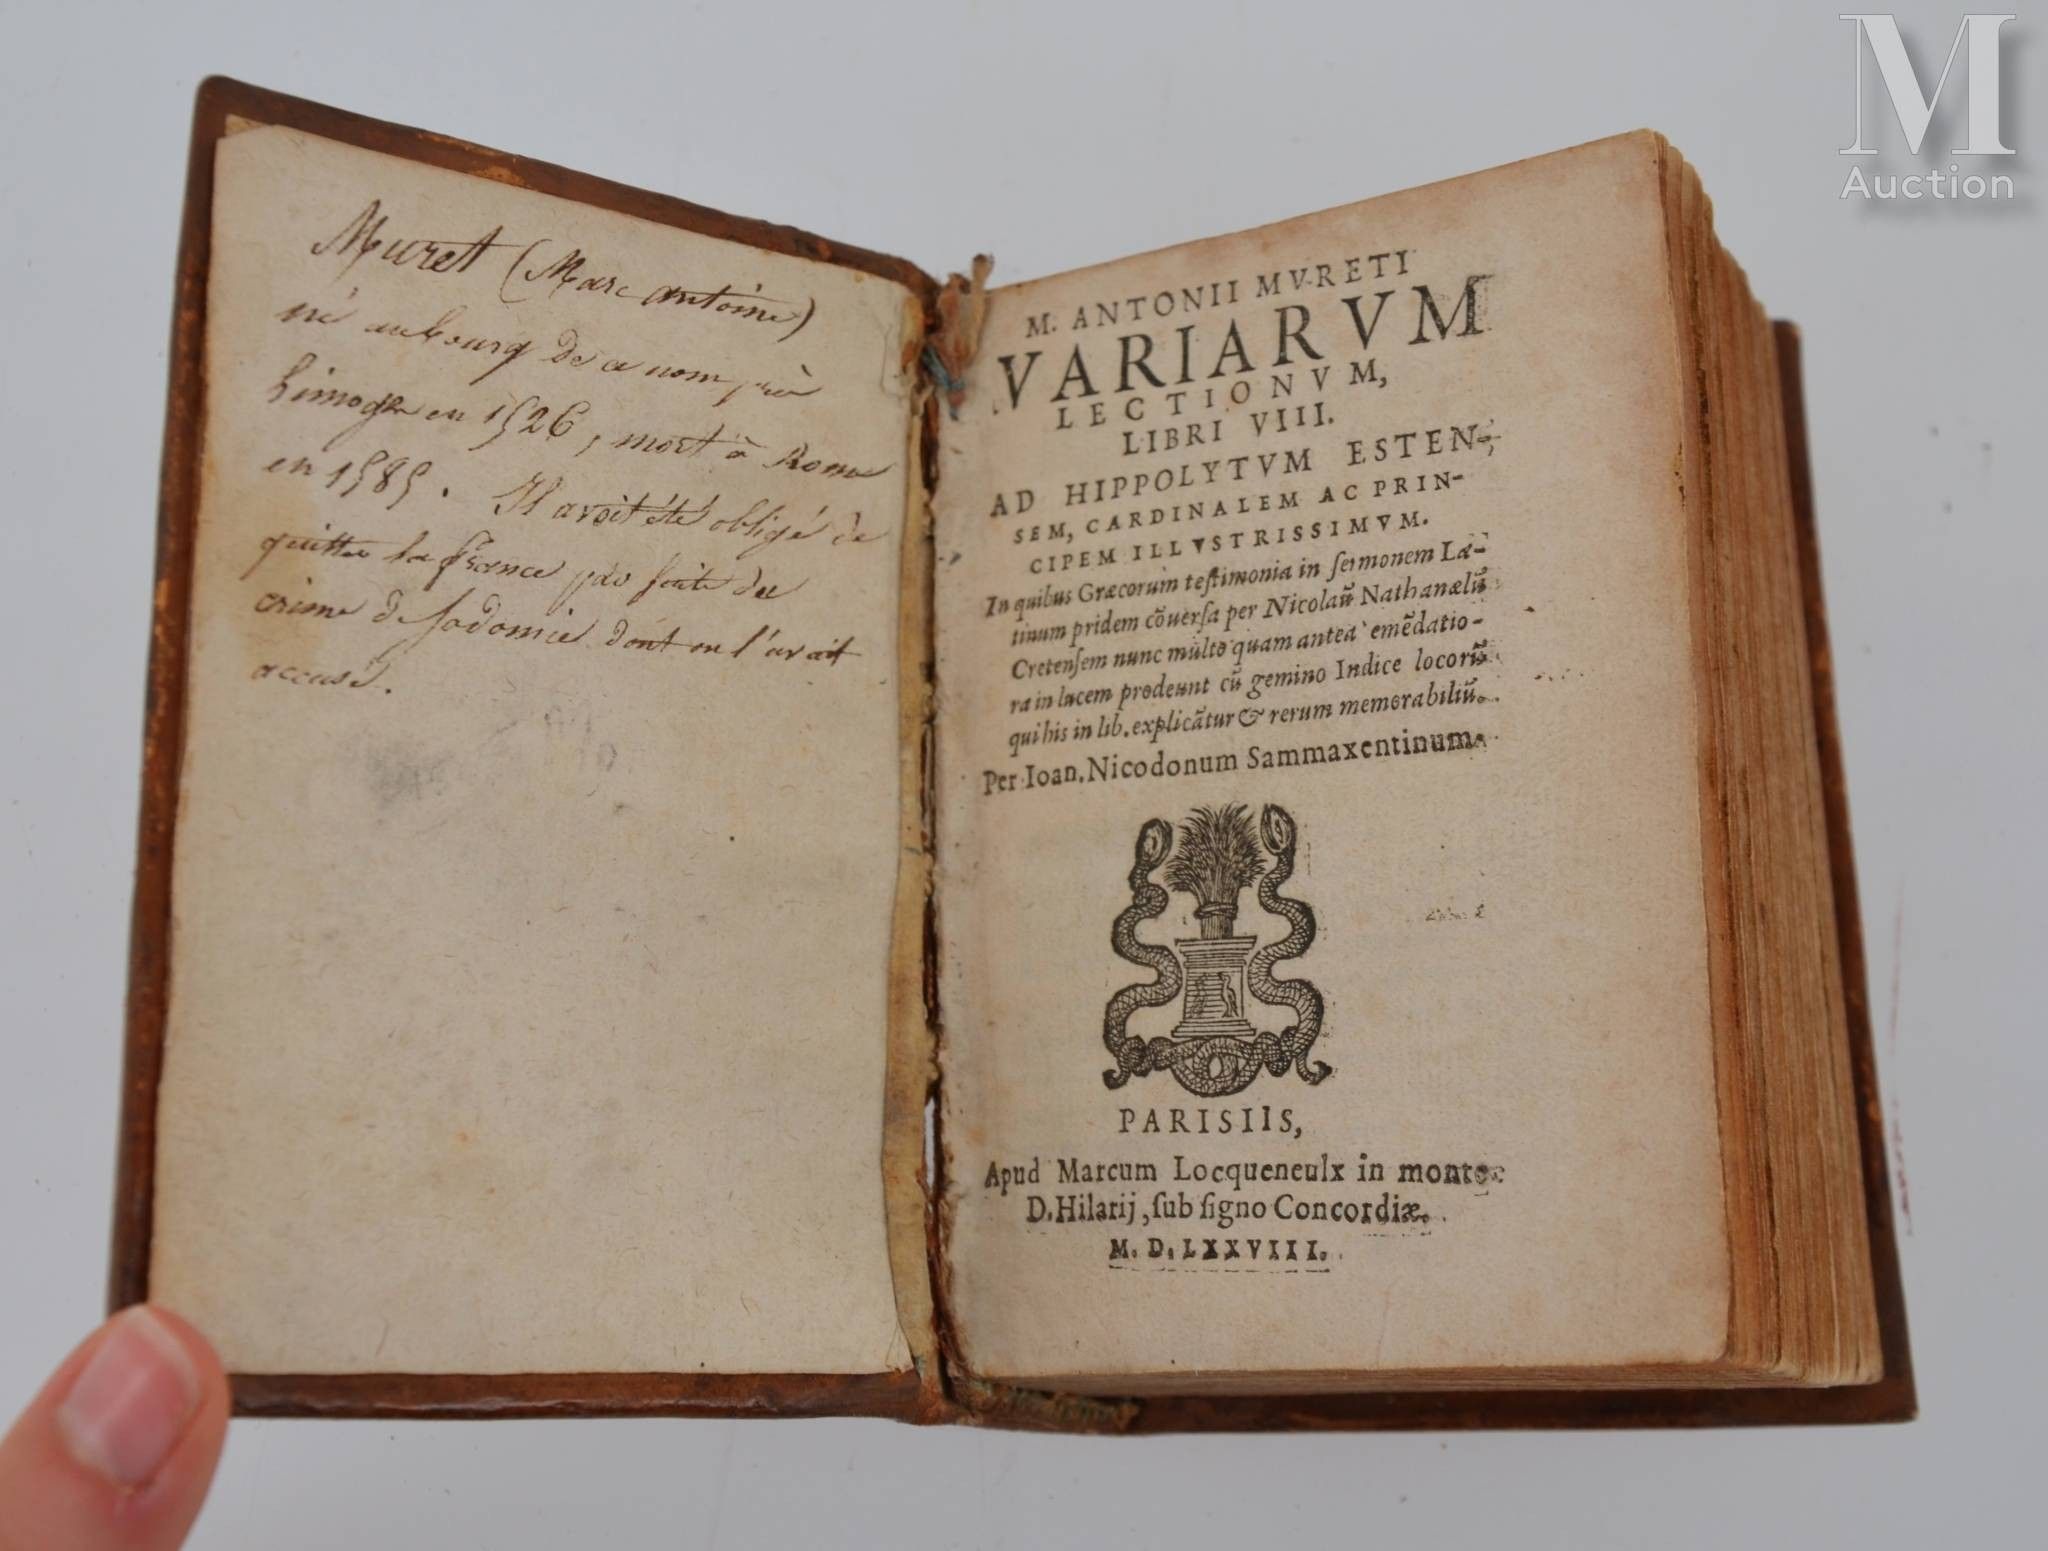 Muret (Marc antoine)
né au bourg de ce nom près
Limoges en 1526, mort à Rome
en 1585. Il avoit été obligé de
quitter la france par suite du
crime de sodomie dont on l'avait
accusé.
M. ANTONII MVRETI
VARIARVM
LECTIONVM,
LIBRI VIII.
AD HIPPOLYTVM ESTEN-
SEM, CARDINALEM AC PRIN-
CIPEM ILLVSTRISSIMVM.
In quibus Græcorum teſtimonia in ſermonem La-
tinum pridem cōuerſa per Nicolaū Nathanaelū
Cretenſem nunc multo quam antea emēdatio-
ra in lucem prodeunt cū gemino Indice locorū
qui his in lib. explicātur & rerum memorabiliū.
Per Ioan. Nicodonum Sammaxentinum.
PARISIIS,
Apud Marcum Locqueneulx in monte
D. Hilarij, ſub ſigno Concordiæ.
M. D. LXXVIII.
M
Auction